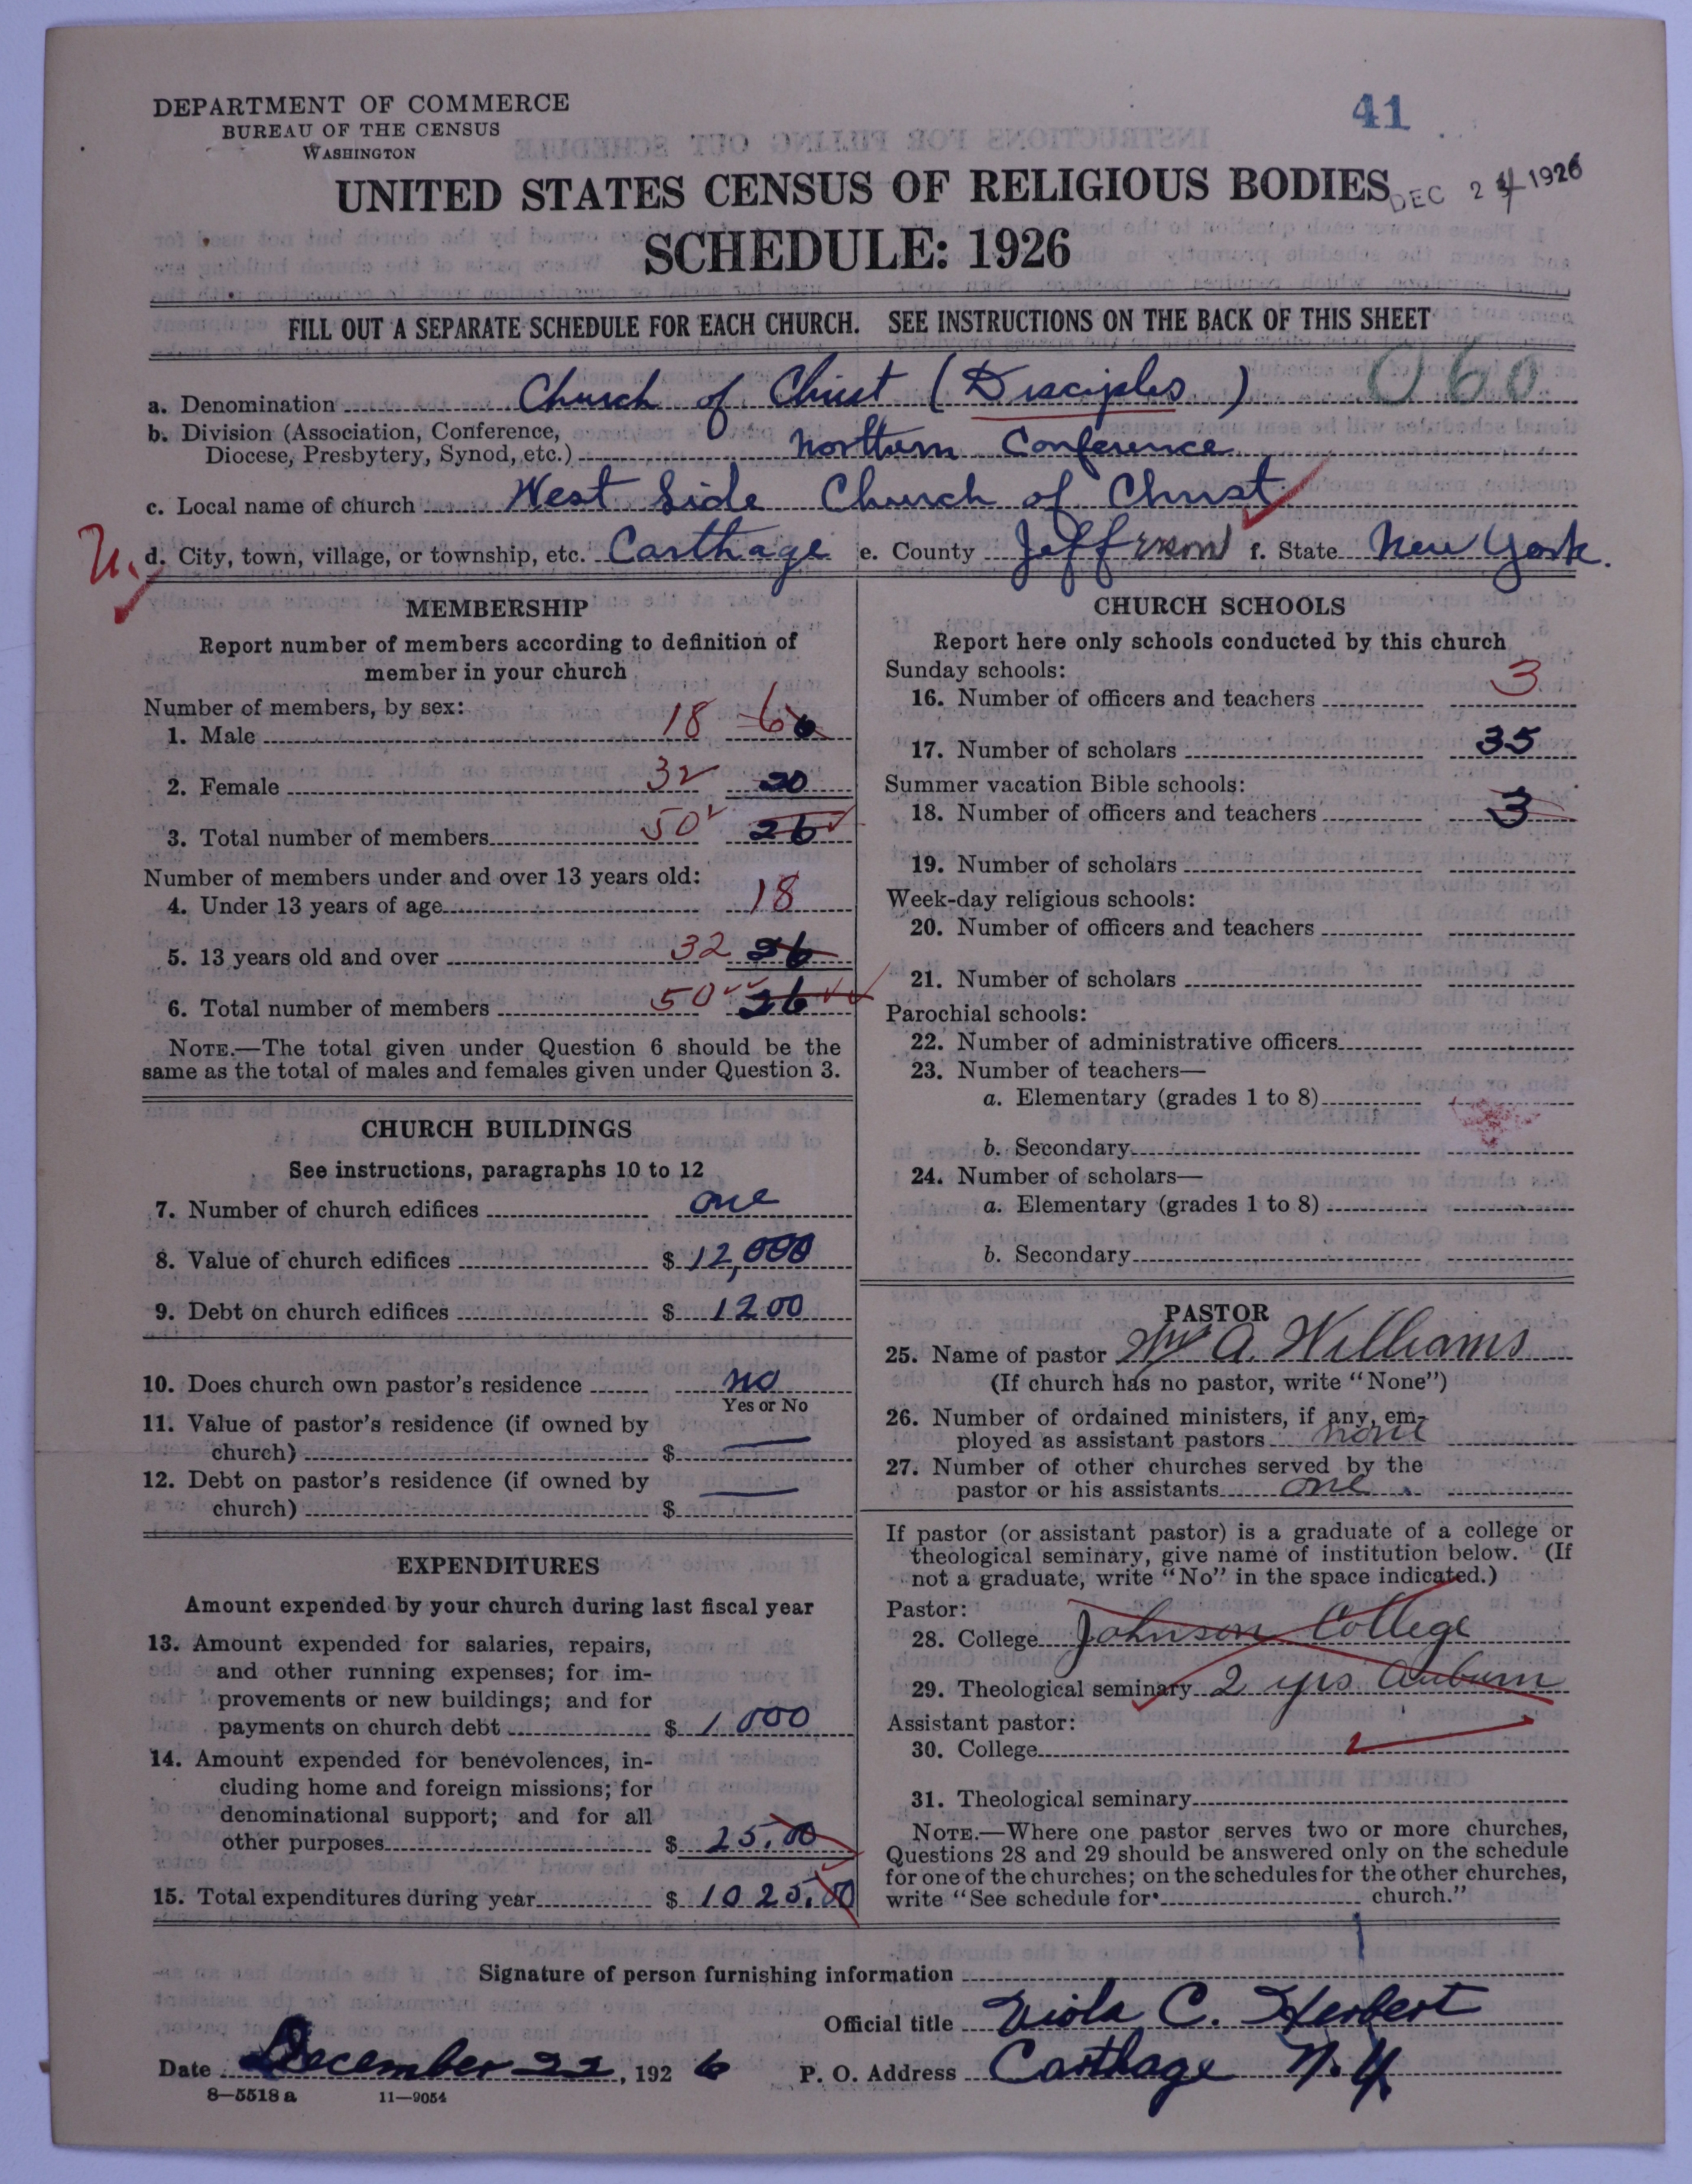 DEPARTMENT OF COMMERCE
BUREAU OF THE CENSUS
WASHINGTON
41
DEC 24 1926
UNITED STATES CENSUS OF RELIGIOUS BODIES
SCHEDULE: 1926
FILL OUT A SEPARATE SCHEDULE FOR EACH CHURCH. SEE INSTRUCTIONS ON THE BACK OF THIS SHEET
a. Denomination Church of Christ (Disciples) 060
b. Division (Association, Conference,
Diocese, Presbytery, Synod, etc.) Northern Conference
c. Local name of church West Side Church of Christ
d. City, town, village, or township, etc. Carthage e. County Jefferson f. State New York.
MEMBERSHIP
Report number of members according to definition of
member in your church
Number of members, by sex:
1. Male 18 6
2. Female 32 20
3. Total number of members 50 26
Number of members under and over 13 years old:
4. Under 13 years of age 18
5. 13 years old and over 32 26
6. Total number of members 50 26
NOTE.—The total given under Question 6 should be the
same as the total of males and females given under Question 3.
CHURCH BUILDINGS
See instructions, paragraphs 10 to 12
7. Number of church edifices one
8. Value of church edifices $ 12,000
9. Debt on church edifices $ 1200
10. Does church own pastor's residence no
Yes or No
11. Value of pastor's residence (if owned by
church) $ —
12. Debt on pastor's residence (if owned by
church) $ —
EXPENDITURES
Amount expended by your church during last fiscal year
13. Amount expended for salaries, repairs,
and other running expenses; for im-
provements or new buildings; and for
payments on church debt $ 1000
14. Amount expended for benevolences, in-
cluding home and foreign missions; for
denominational support; and for all
other purposes $ 25.00
15. Total expenditures during year $ 1025.00
CHURCH SCHOOLS
Report here only schools conducted by this church
Sunday schools:
16. Number of officers and teachers 3
17. Number of scholars 35
Summer vacation Bible schools:
18. Number of officers and teachers 3
19. Number of scholars
Week-day religious schools:
20. Number of officers and teachers
21. Number of scholars
Parochial schools:
22. Number of administrative officers
23. Number of teachers—
a. Elementary (grades 1 to 8)
b. Secondary
24. Number of scholars—
a. Elementary (grades 1 to 8)
b. Secondary
PASTOR
25. Name of pastor Wm A. Williams
(If church has no pastor, write "None")
26. Number of ordained ministers, if any, em-
ployed as assistant pastors none
27. Number of other churches served by the
pastor or his assistants one
If pastor (or assistant pastor) is a graduate of a college or
theological seminary, give name of institution below. (If
not a graduate, write "No" in the space indicated.)
Pastor:
28. College Johnson College
29. Theological seminary 2 yrs Auburn
Assistant pastor:
30. College
31. Theological seminary
NOTE.—Where one pastor serves two or more churches,
Questions 28 and 29 should be answered only on the schedule
for one of the churches; on the schedules for the other churches,
write "See schedule for church."
Signature of person furnishing information
Official title Viola C. Herbert
Date December 22, 1926 P. O. Address Carthage N.Y.
8—5518 a 11—9054